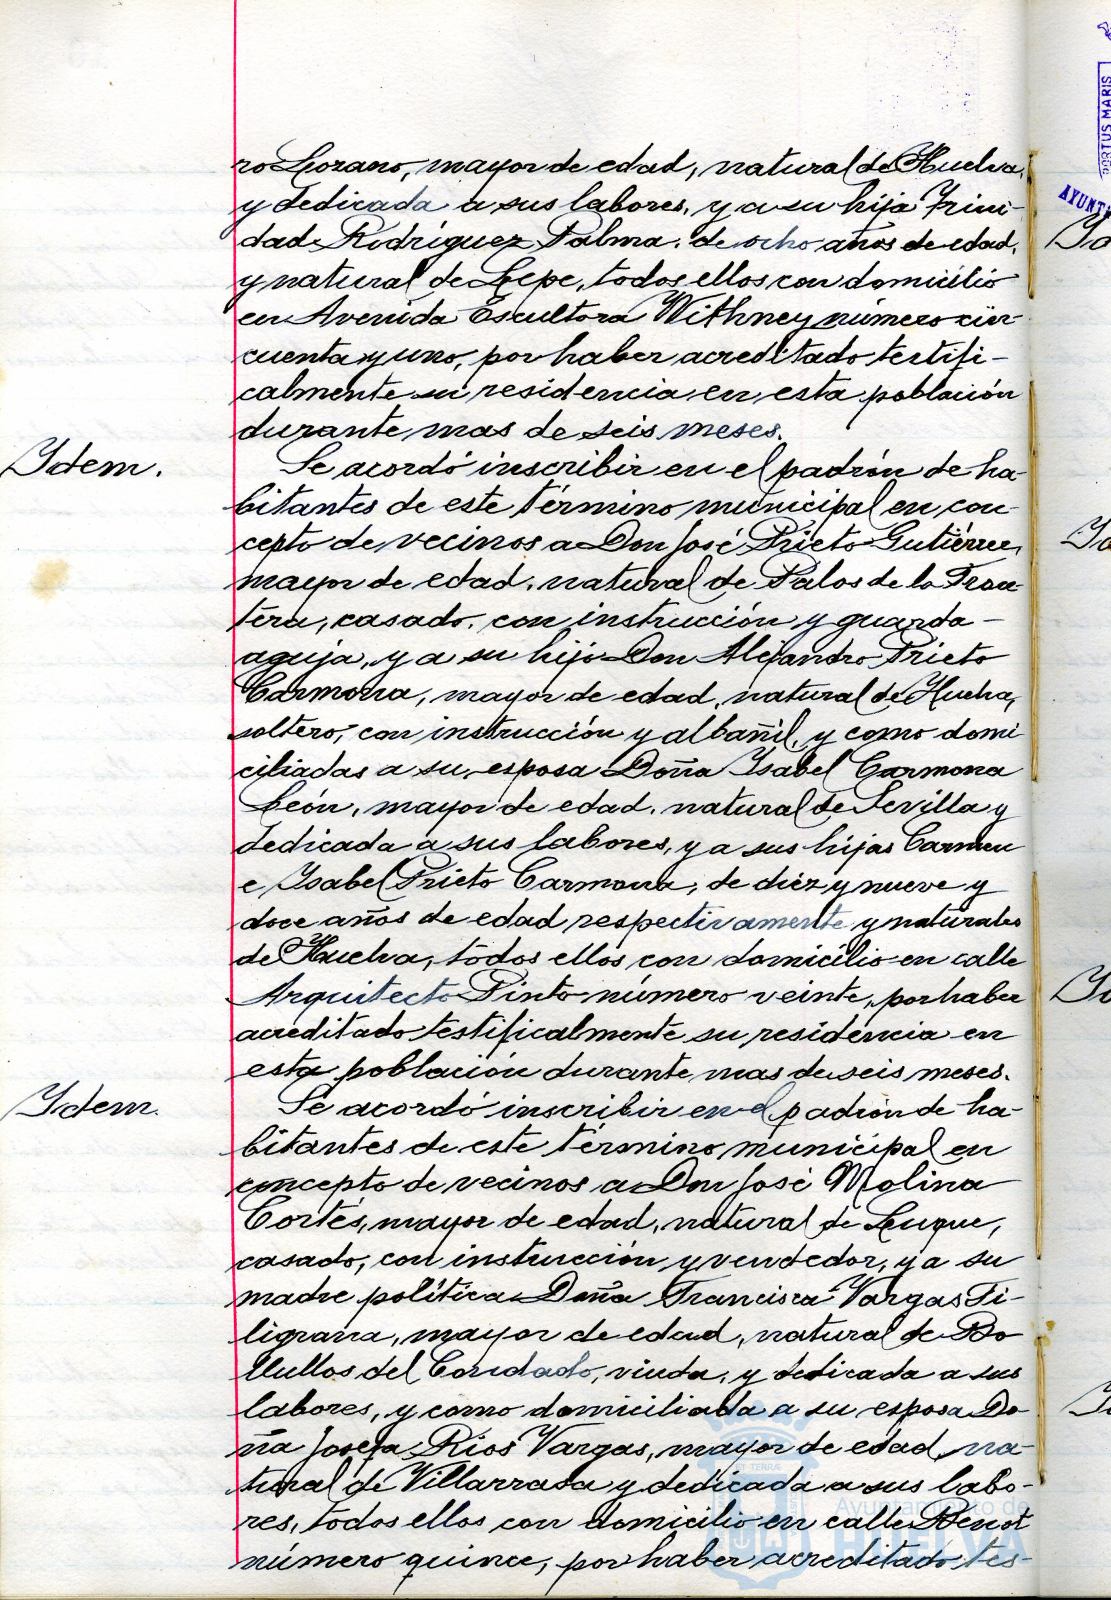 ro Lozano, mayor de edad, natural de Huelva,
y dedicada a sus labores, y a su hija Trini-
dad Rodríguez Palma, de ocho años de edad,
y natural de Lepe, todos ellos con domicilio
en Avenida Escultora Withney número cin-
cuenta y uno, por haber acreditado testifi-
calmente su residencia en esta población
durante mas de seis meses.
Idem.
Se acordó inscribir en el padrón de ha-
bitantes de este término municipal en con-
cepto de vecinos a Don José Prieto Gutiérrez,
mayor de edad, natural de Palos de la Fron-
tera, casado, con instrucción y guarda-
aguja, y a su hijo Don Alejandro Prieto
Carmona, mayor de edad, natural de Huelva,
soltero, con instrucción y albañil, y como domi-
ciliadas a su esposa Doña Isabel Carmona
León, mayor de edad, natural de Sevilla y
dedicada a sus labores, y a sus hijas Carmen
e Isabel Prieto Carmona, de diez y nueve y
doce años de edad respectivamente y naturales
de Huelva, todos ellos con domicilio en calle
Arquitecto Pinto número veinte, por haber
acreditado testificalmente su residencia en
esta población durante mas de seis meses.
Idem.
Se acordó inscribir en el padrón de ha-
bitantes de este término municipal en
concepto de vecinos a Don José Molina
Cortés, mayor de edad, natural de Luque,
casado, con instrucción y vendedor, y a su
madre política Doña Francisca Vargas Fi-
ligrana, mayor de edad, natural de Bo-
llullos del Condado, viuda, y dedicada a sus
labores, y como domiciliada a su esposa Do-
ña Josefa Rios Vargas, mayor de edad, na-
tural de Villarrasa y dedicada a sus labo-
res, todos ellos con domicilio en calle Benot
número quince, por haber acreditado tes-
Ayuntamiento de
HUELVA
PORTUS MARIS